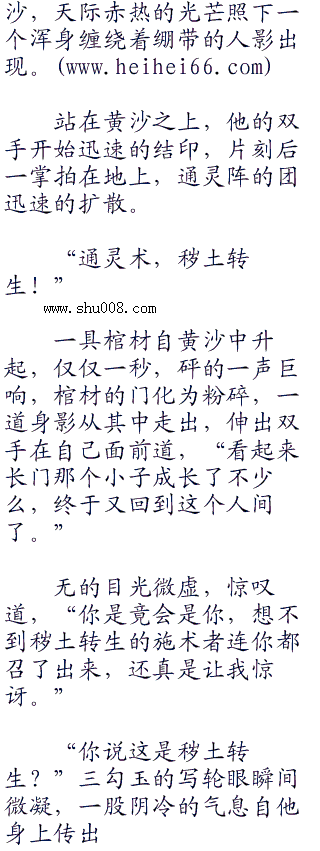 沙，天际赤热的光芒照下一
个浑身缠绕着绷带的人影出
现。(www.heihei66.com)
站在黄沙之上，他的双
手开始迅速的结印，片刻后
一掌拍在地上，通灵阵的团
迅速的扩散。
“通灵术，秽土转
生！”
www.shu008.com
一具棺材自黄沙中升
起，仅仅一秒，砰的一声巨
响，棺材的门化为粉碎，一
道身影从其中走出，伸出双
手在自己面前道，“看起来
长门那个小子成长了不少
么，终于又回到这个人间
了。”
无的目光微虚，惊叹
道，“你是竟会是你，想不
到秽土转生的施术者连你都
召了出来，还真是让我惊
讶。”
“你说这是秽土转
生？”三勾玉的写轮眼瞬间
微凝，一股阴冷的气息自他
身上传出